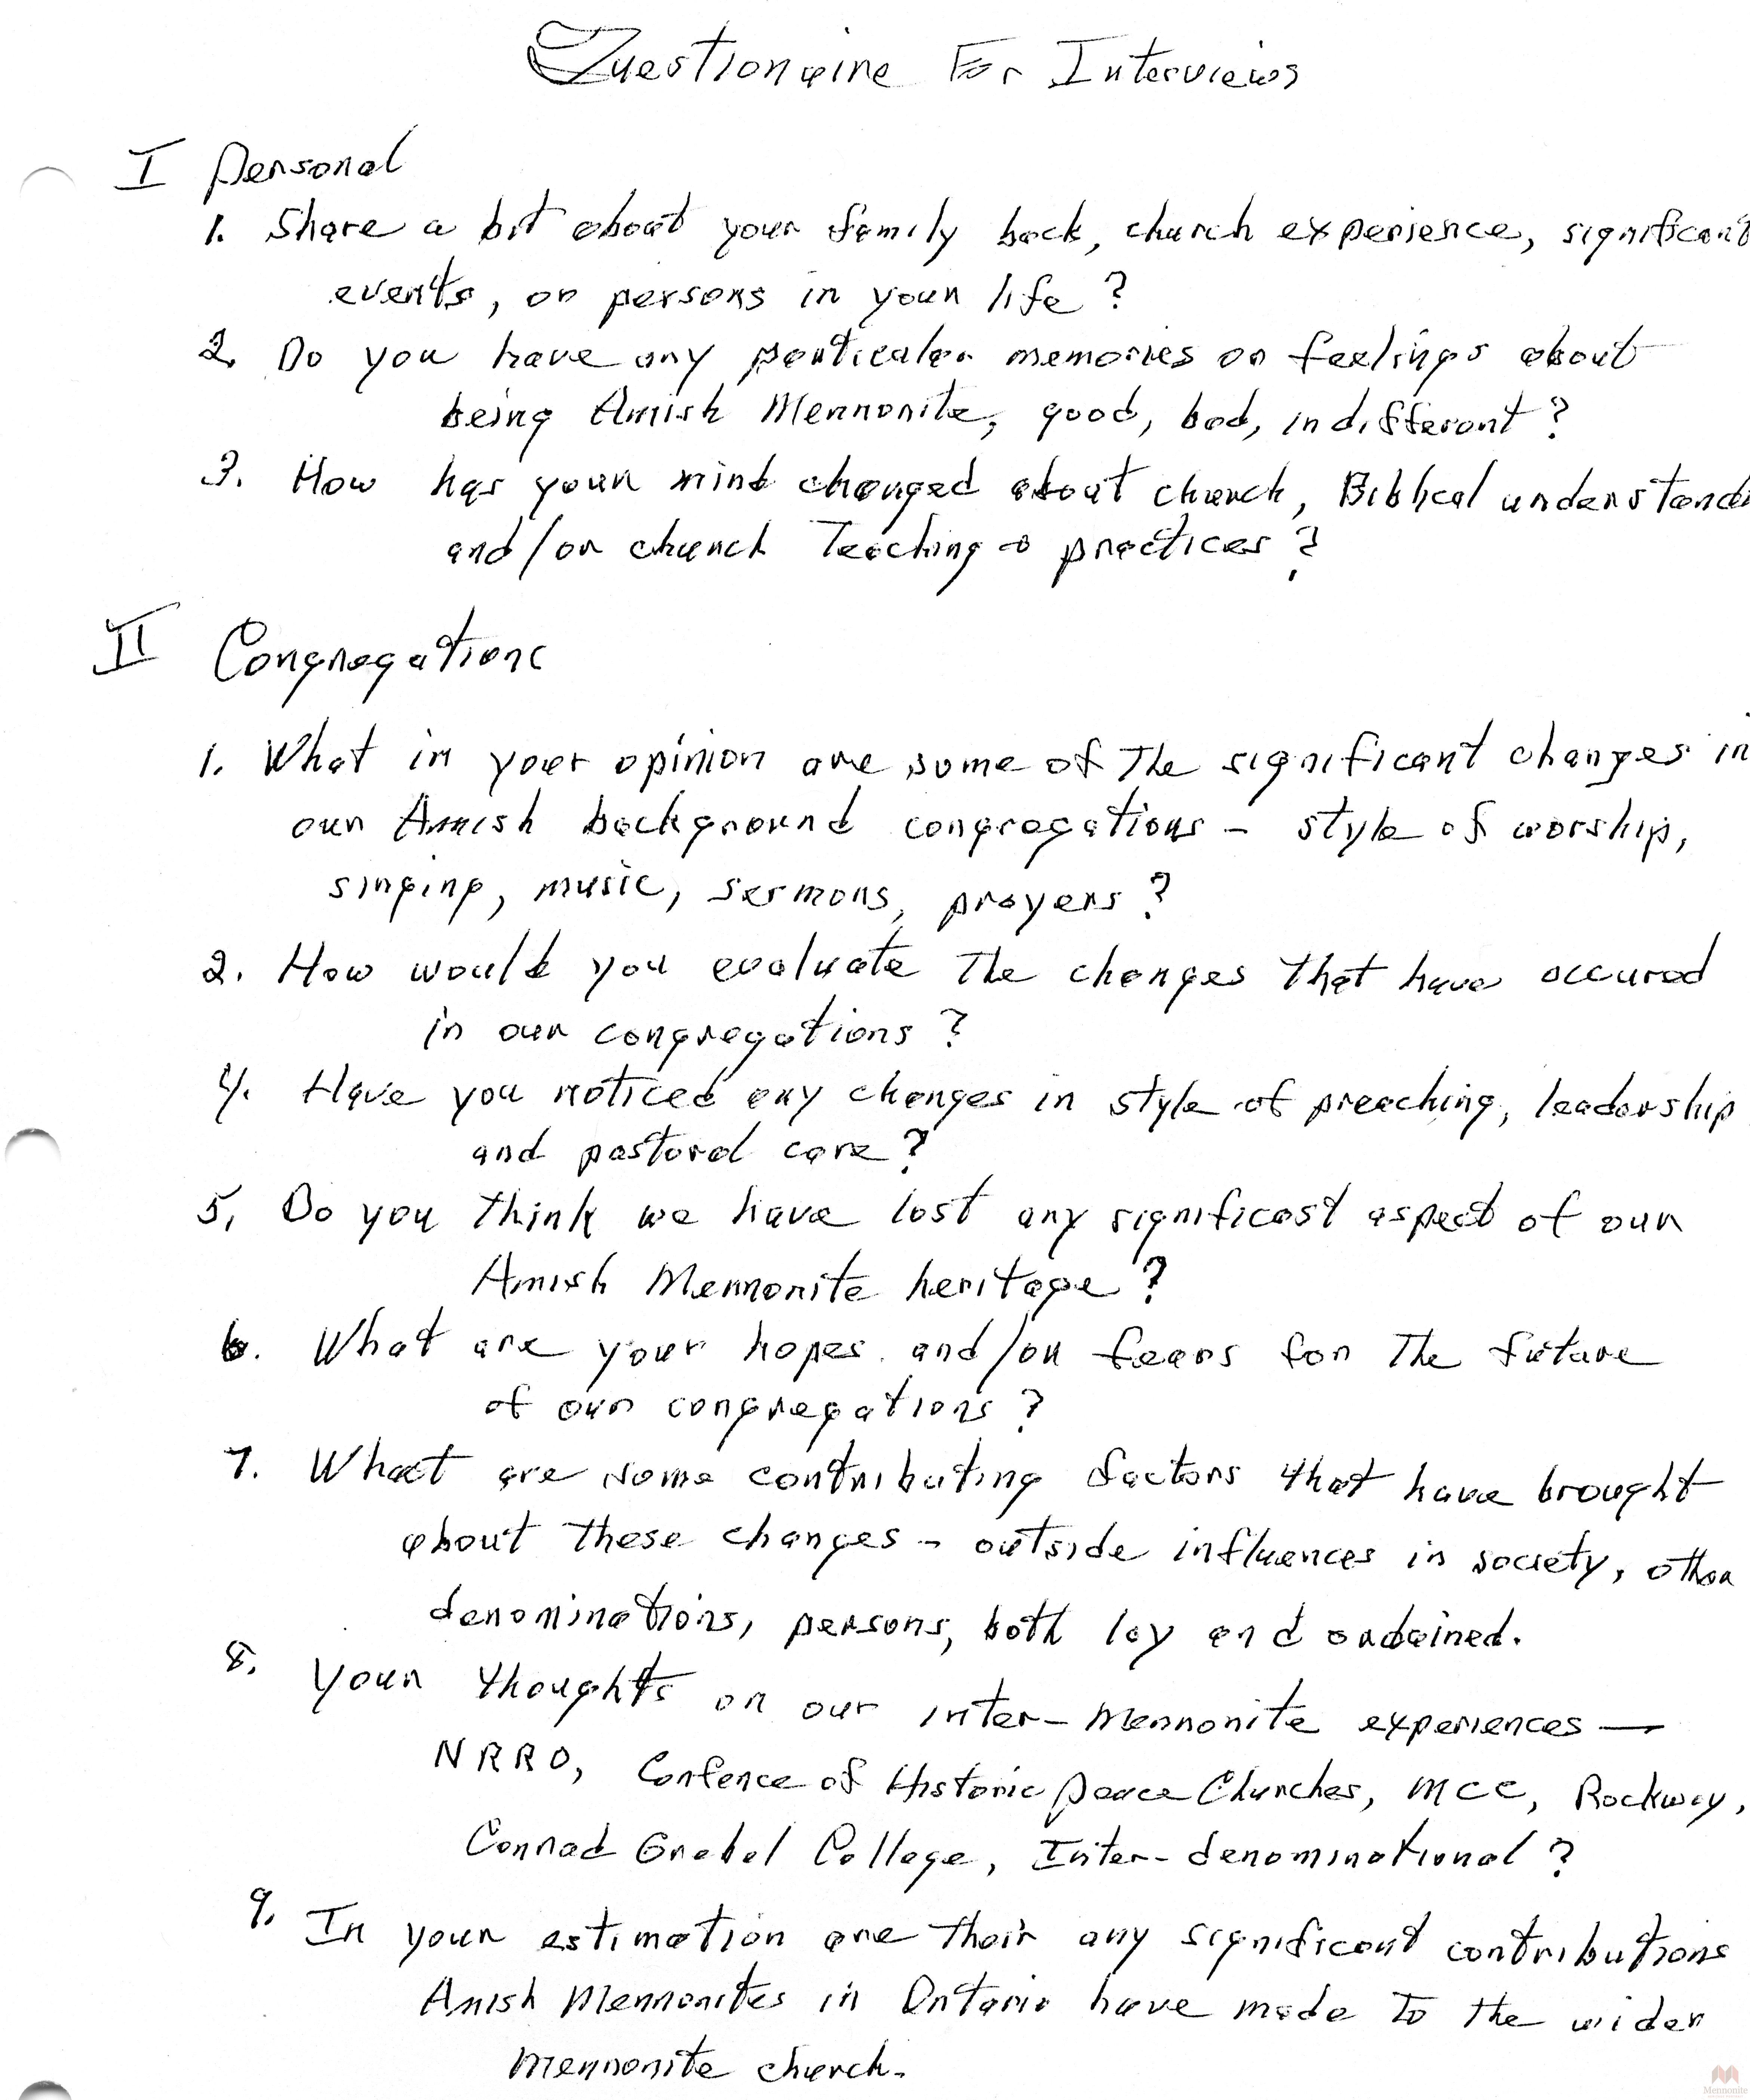 Questionaire For Interviews
I Personal
1. Share a bit about your family back, church experience, significant
events, or persons in your life?
2. Do you have any particular memories or feelings about
being Amish Mennonite, good, bad, indifferent?
3. How has your mind changed about church, Biblical understand
and/or church Teaching + practices?
II Congregations
1. What in your opinion are some of The significant changes in
our Amish background congregations - style of worship,
singing, music, sermons, prayers?
2. How would you evaluate The changes that have occured
in our congregations?
4. Have you noticed any changes in style of preaching, leadership
and pastoral care?
5. Do you think we have lost any significant aspect of our
Amish Mennonite heritage?
6. What are your hopes and/or fears for The future
of our congregations?
7. What are some contributing factors that have brought
about these changes - outside influences in society, other
denominations, persons, both lay and ordained.
8. Your thoughts on our inter-Mennonite experiences —
NRRO, Confence of Historic Peace Churches, MCC, Rockway,
Conrad Grebel College, Inter-denominational?
9. In your estimation are their any significant contributions
Amish Mennonites in Ontario have made To the wider
Mennonite church.
Mennonite